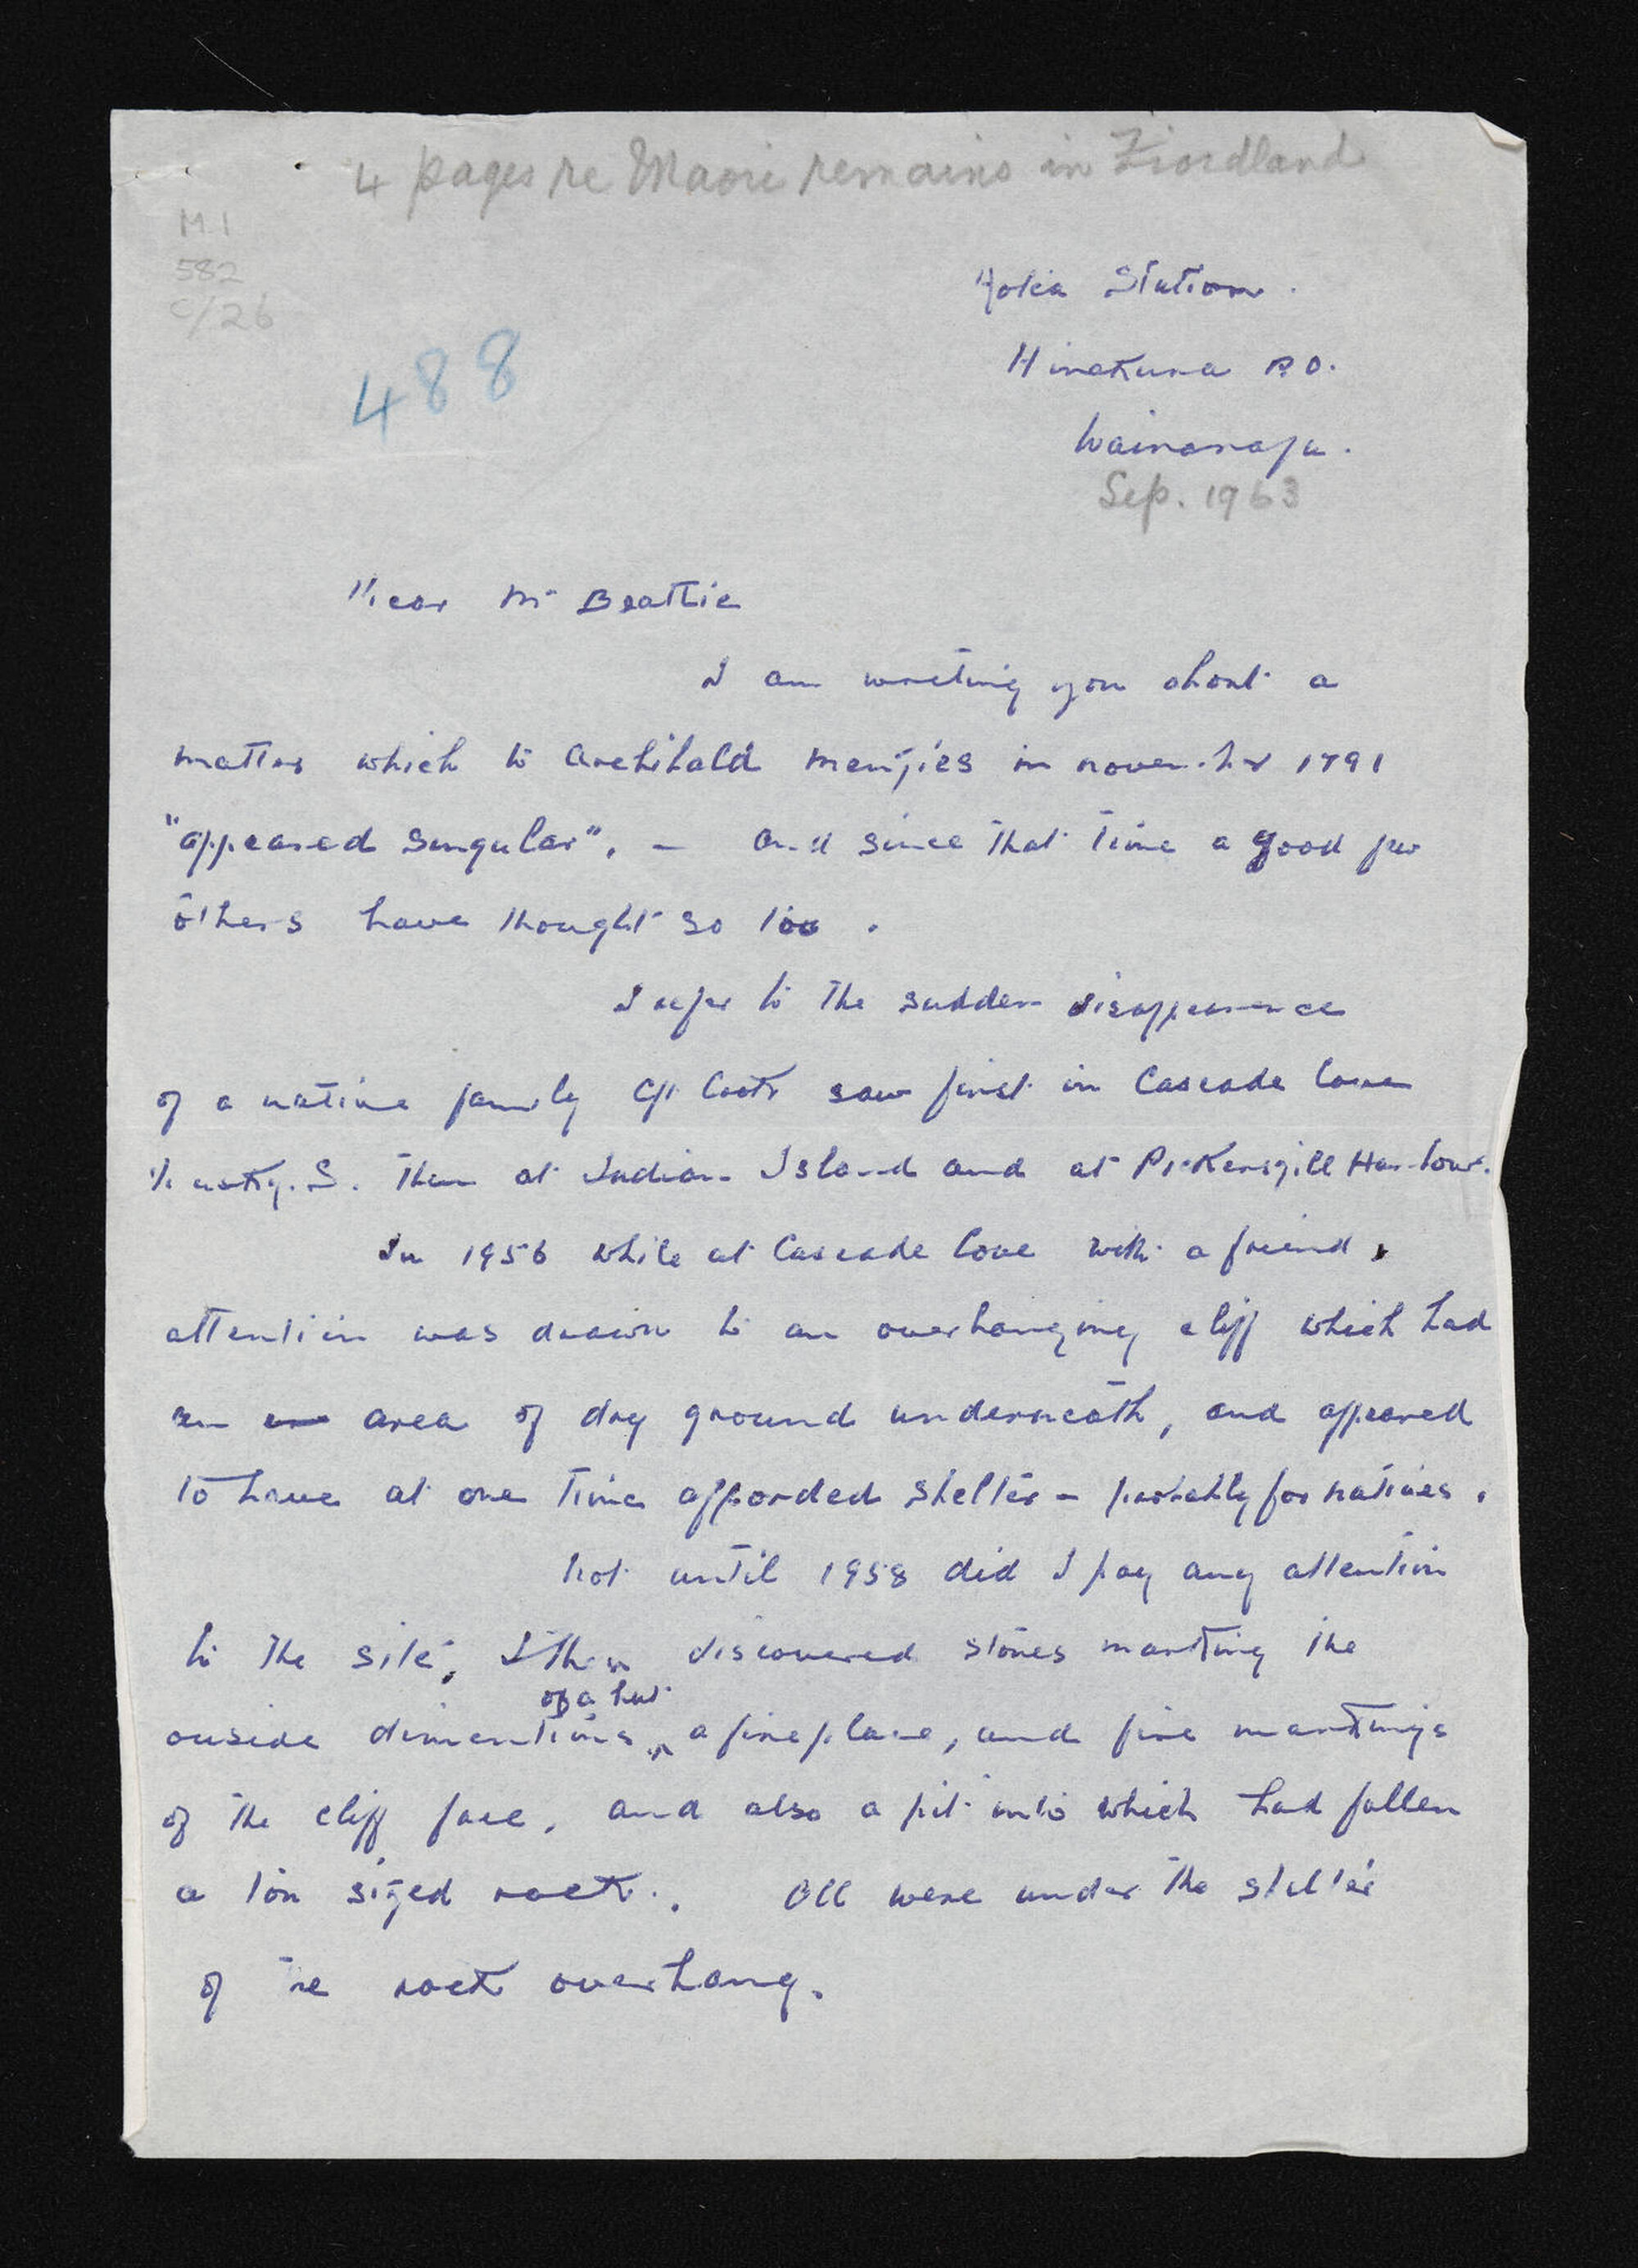 4 pages re Maori remains in Fiordland
M.I
582
C/26
488
Station.
Hinakura P.O.
Wairarapa.
Sep. 1963
Dear Mr Beattie
I am writing you about a
matter which to Archibald Menzies in november 1791
"appeared singular". – and since that time a good few
others have thought so too.
I refer to the sudden disappearance
of a native family Cpt Cook saw first in Cascade Cove
Dusky. S. then at Indian Island and at Pickersgill Harbour.
In 1956 while at Cascade Cove with a friend,
attention was drawn to an overhanging cliff which had
an area of dry ground underneath, and appeared
to have at one time afforded shelter – probably for natives.
Not until 1958 did I pay any attention
to the site, I then discovered stones marking the
of a hut
ouside dimentions, a fireplace, and fire markings
of the cliff face, and also a pit into which had fallen
a ton sized rock. All were under the shelter
of the rock overhang.